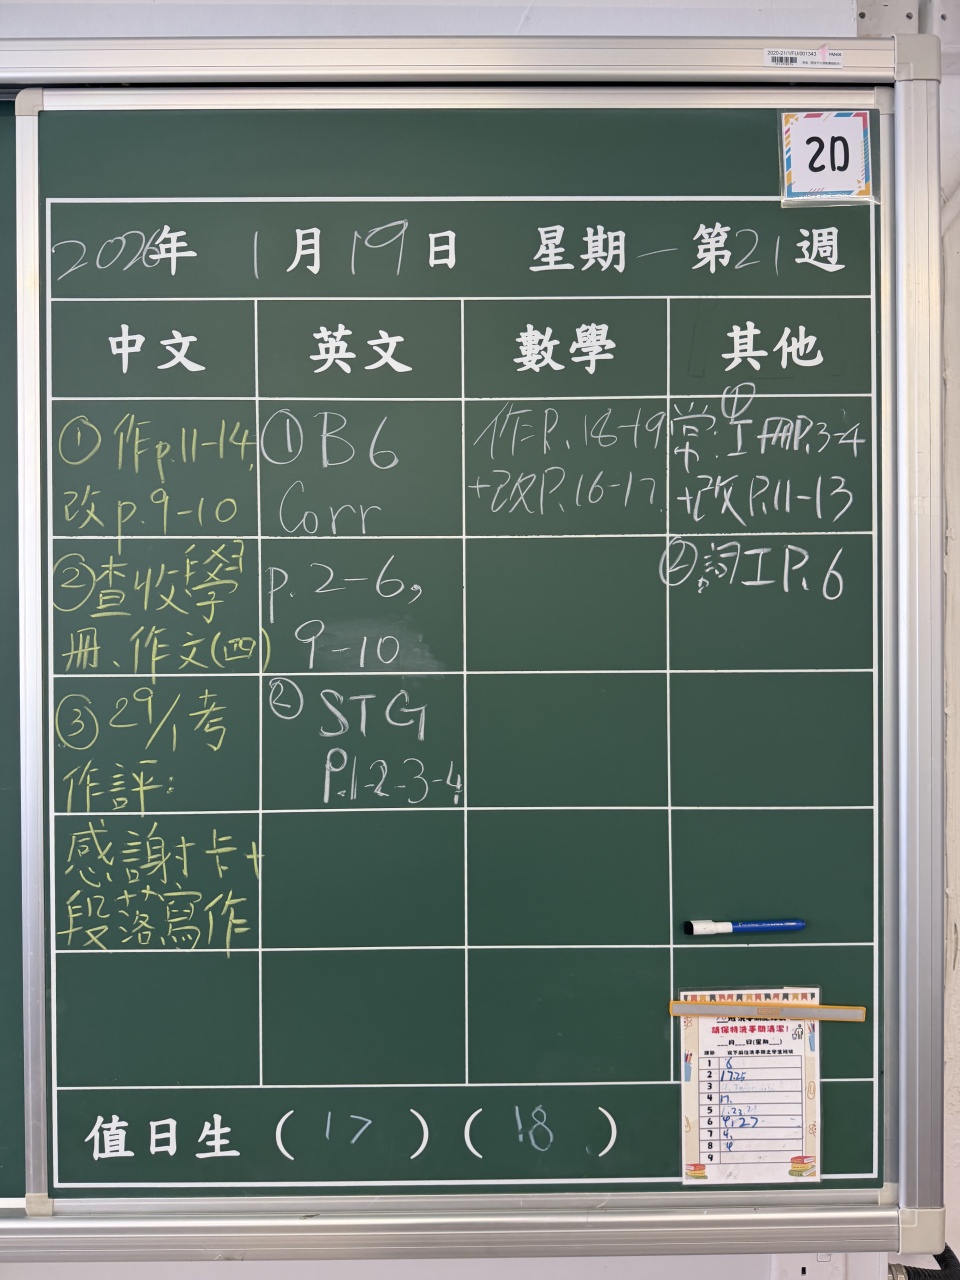 2020-21/1/FLI/001343
2D
2026年 1月19日 星期一 第21週
中文 英文 數學 其他
①作p.11-14,
改p.9-10
②查收學
冊、作文(四)
③29/1考
作評:
感謝卡+
段落寫作
①B6
Corr
p.2-6,
9-10
②STG
P.1-2-3-4
作P.18-19
+改P.16-17
①
常:工冊P.3-4
+改P.11-13
②詞工P.6
請保持洗手間清潔!
___月___日(星期___)
1 6
2 17.25
3
4 17.
5 1.23.27
6 4,27
7 4,
8 4
9
值日生(17)(18)